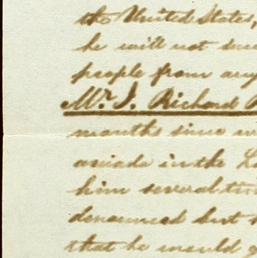 the United States,
he will not
people from any
Mr. J. Richard
months since
in the
him several
denounced but
that he would